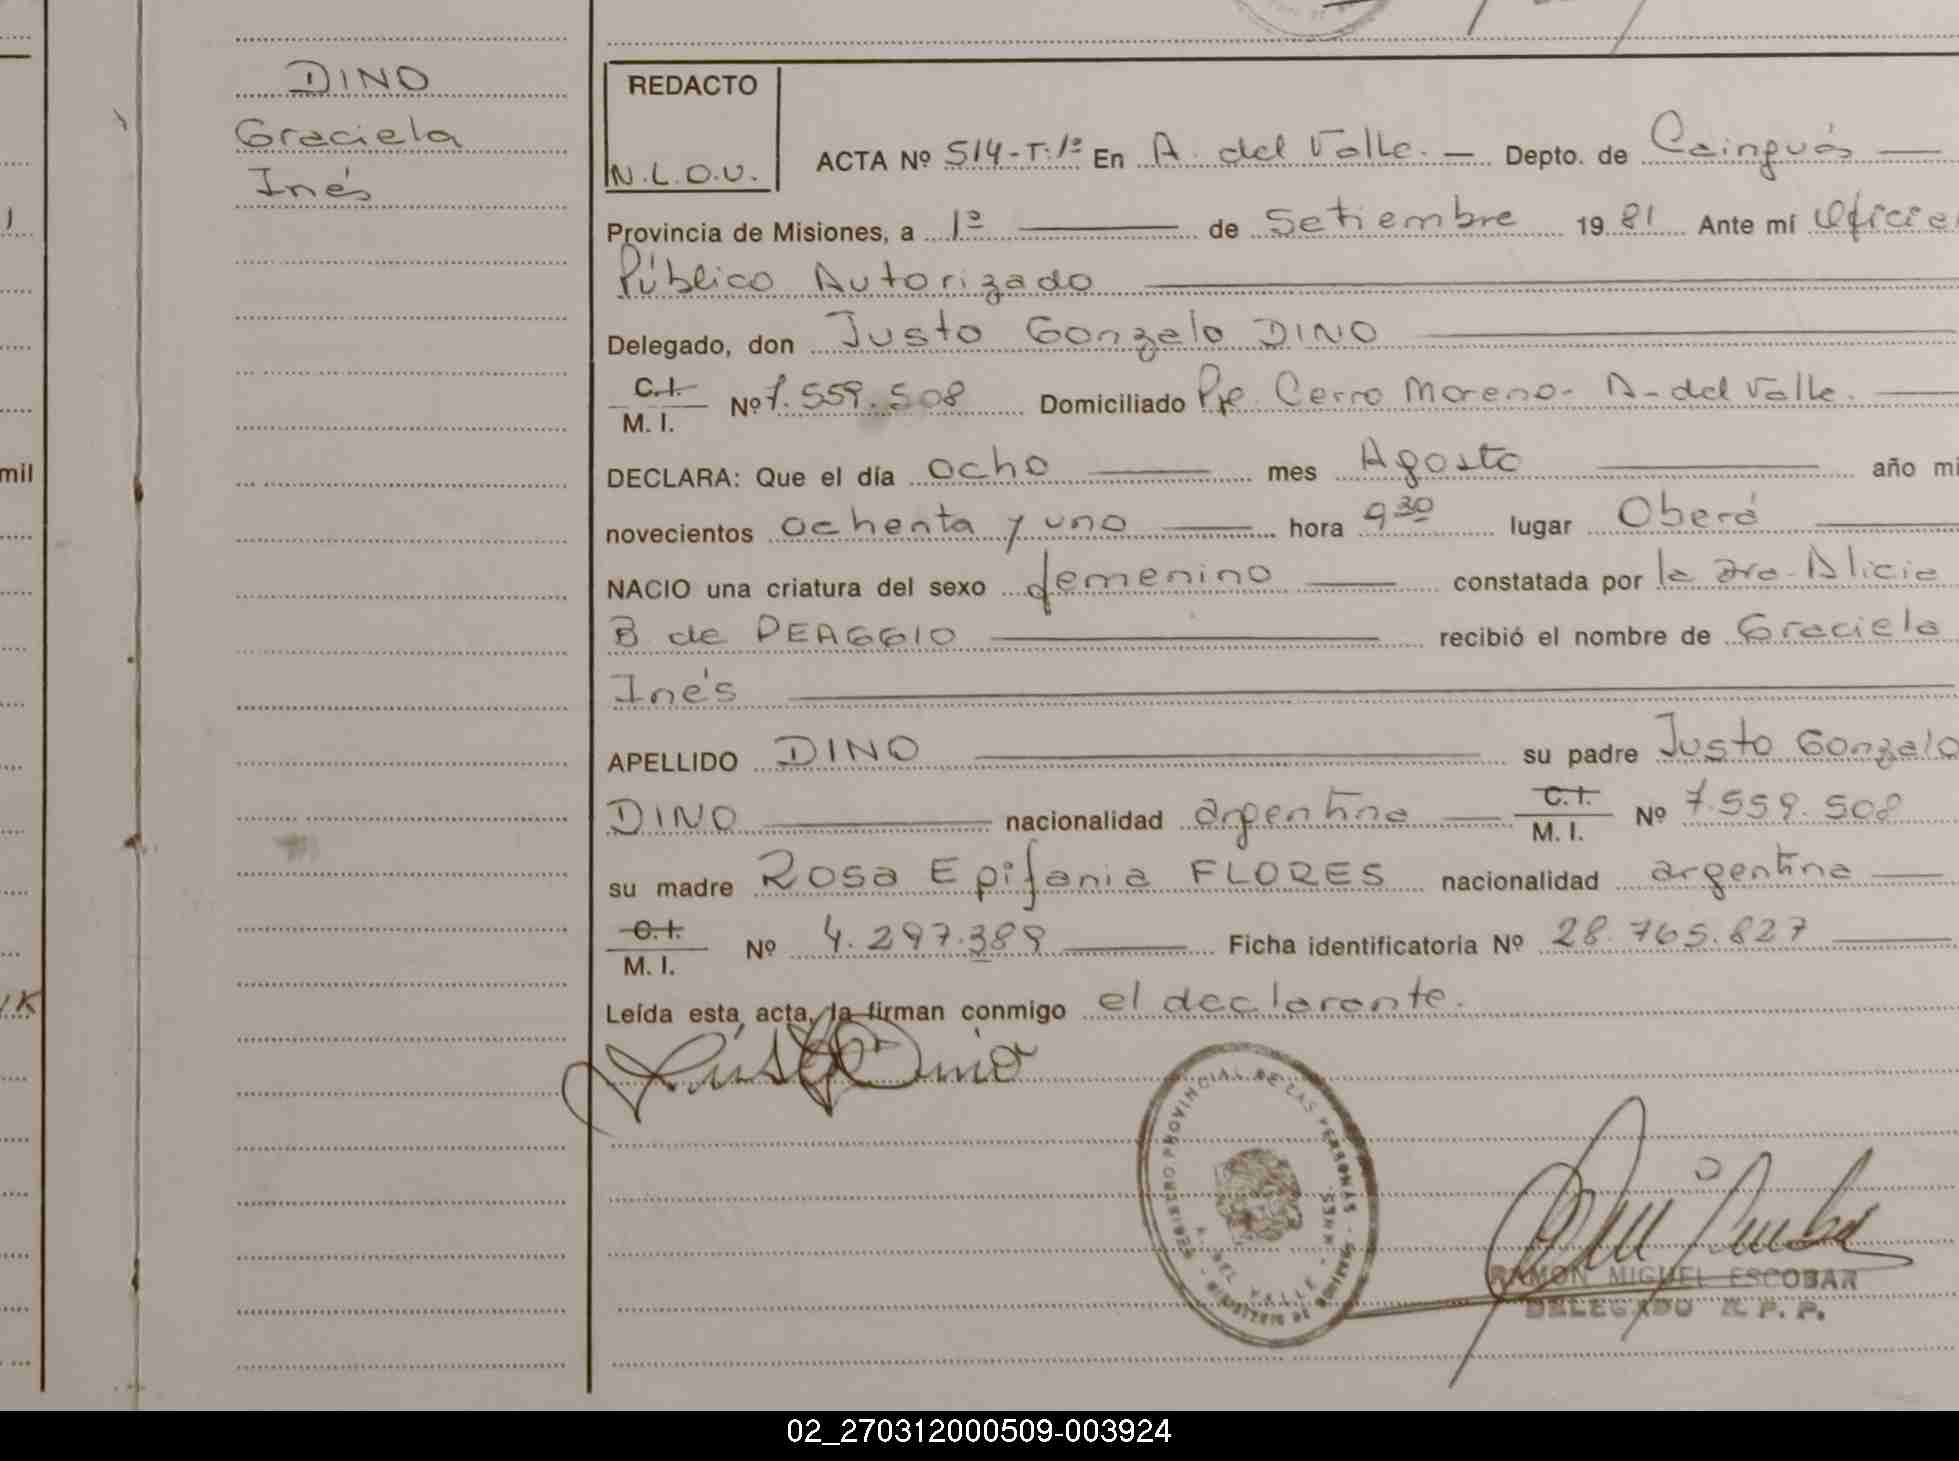 DINO
Graciela
Inés
mil
REDACTO
N.L.O.U.
ACTA Nº 514-T.1º En A. del Valle. — Depto. de Cainguás —
Provincia de Misiones, a 1º — de Setiembre 1981 Ante mí Oficial
Público Autorizado
Delegado, don Justo Gonzalo DINO
C.I.
M. I. Nº 7.559.508 Domiciliado Pje. Cerro Moreno- A-del Valle.
DECLARA: Que el día ocho — mes Agosto — año mi
novecientos ochenta y uno — hora 9 30 lugar Oberá
NACIO una criatura del sexo femenino — constatada por la Dra. Alicia
B de DEAGGIO — recibió el nombre de Graciela
Inés
APELLIDO DINO — su padre Justo Gonzalo
DINO — nacionalidad argentina — C.I. M. I. Nº 7.559.508
su madre Rosa Epifania FLORES nacionalidad argentina —
C.I.
M. I. Nº 4.297.389 — Ficha identificatoria Nº 28.765.827 —
Leída esta acta, la firman conmigo el declarante.
REGISTRO PROVINCIAL DE LAS PERSONAS
A. DEL VALLE
RAMON MIGUEL ESCOBAR
DELEGADO R. P. P.
02_270312000509-003924